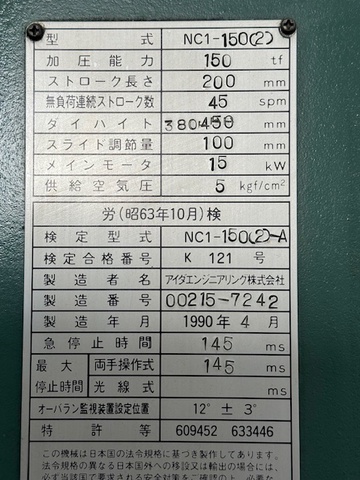 型式 NC1-150(2)
加圧能力 150 tf
ストローク長さ 200 mm
無負荷連続ストローク数 45 spm
ダイハイト 380450 mm
スライド調節量 100 mm
メインモータ 15 kW
供給空気圧 5 kgf/cm²
労(昭63年10月)検
検定型式 NC1-150(2)-A
検定合格番号 K 121 号
製造者名 アイダエンジニアリング株式会社
製造番号 00215-7242
製造年月 1990年4月
急停止時間 145 ms
最大停止時間 両手操作式 145 ms
光線式 ms
オーバラン監視装置設定位置 12° ± 3°
特許等 609452 633446
この機械は日本国の法令規格に基づき製作しております。
法令規格の異なる日本国外への移設又は輸出の場合には、
必ず当該国で要求される安全対策をご確認の上、必要な